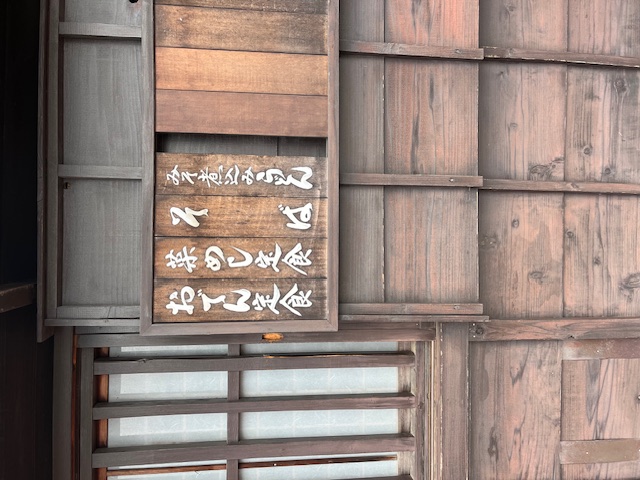 みそ煮込みうどん
そば
菜めし定食
おでん定食